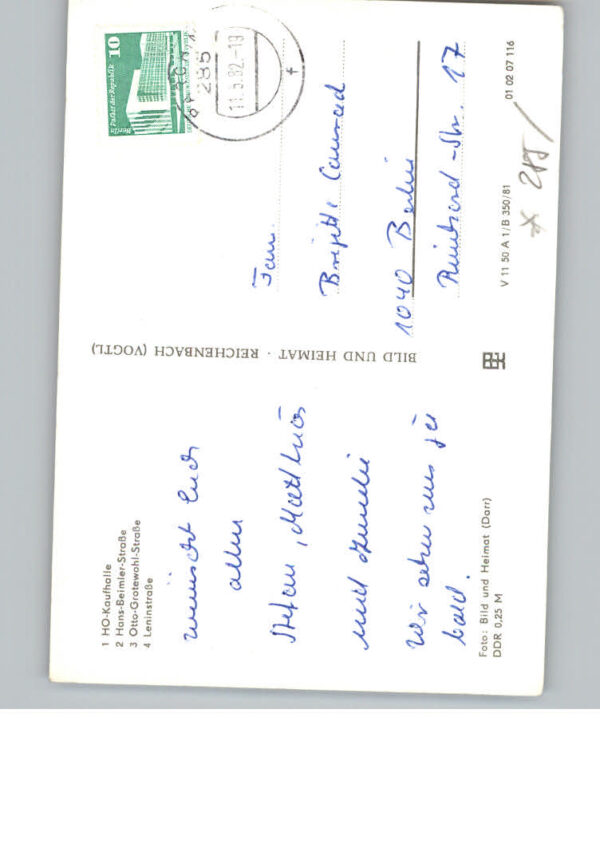 1 HO-Kaufhalle
2 Hans-Beimler-Straße
3 Otto-Grotewohl-Straße
4 Leninstraße
wünscht Euch
allen
Stefan, Matthias
und Familie
Wir sehen uns ja
bald.
Foto: Bild und Heimat (Darr)
DDR 0,25 M
BILD UND HEIMAT · REICHENBACH (VOGTL)
10
Palast der Republik
Berlin
DDR
285
11.5.82.-19
Fam.
Brigitte Conrad
1040 Berlin
Reinhard-Str. 17
V 11 50 A 1/B 350/81
01 02 07 116
285/